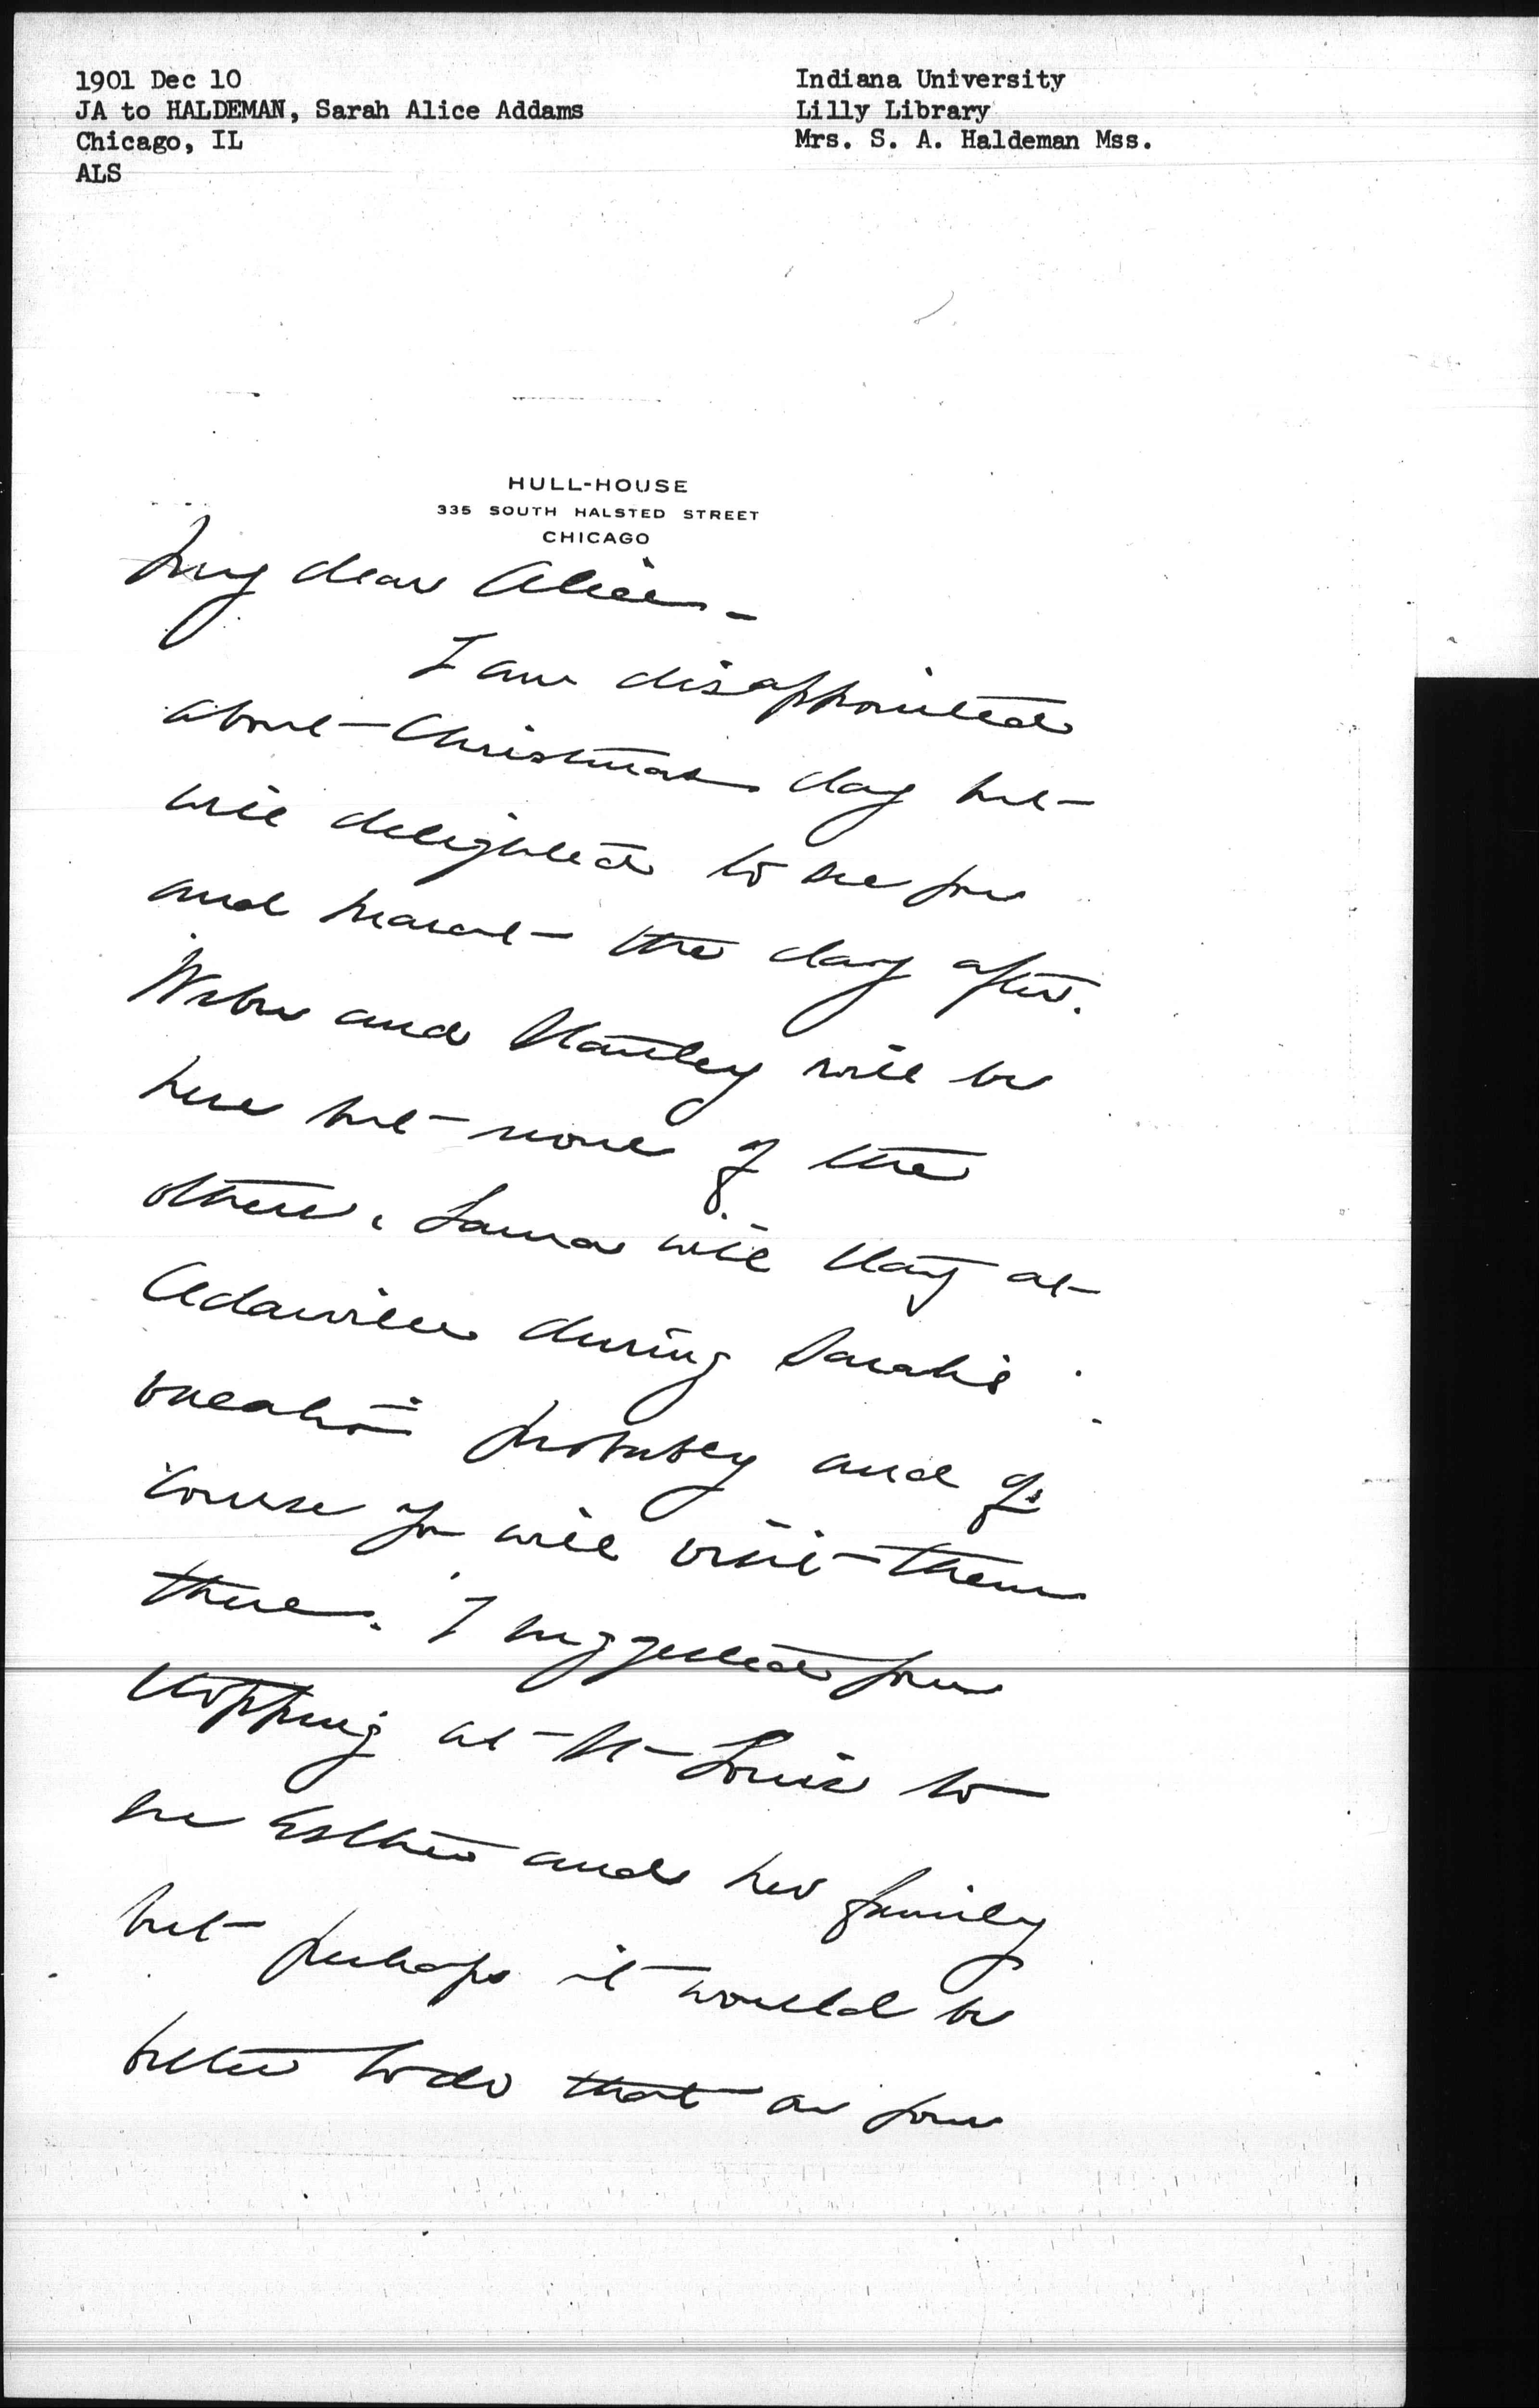 1901 Dec 10
JA to HALDEMAN, Sarah Alice Addams
Chicago, IL
ALS
Indiana University
Lilly Library
Mrs. S. A. Haldeman Mss.
HULL-HOUSE
335 SOUTH HALSTED STREET
CHICAGO
My dear Alice -
I am disappointed
about Christmas day but
will delighted to see you
and Marcet the day after.
Weber and Stanley will be
here but none of the
others. Laura will stay at
Cedarville during Sarah's
vacation probably and of
course you will visit them
there. I suggested your
stopping at St Louis to
see Esther and her family
but perhaps it would be
better to do that on your